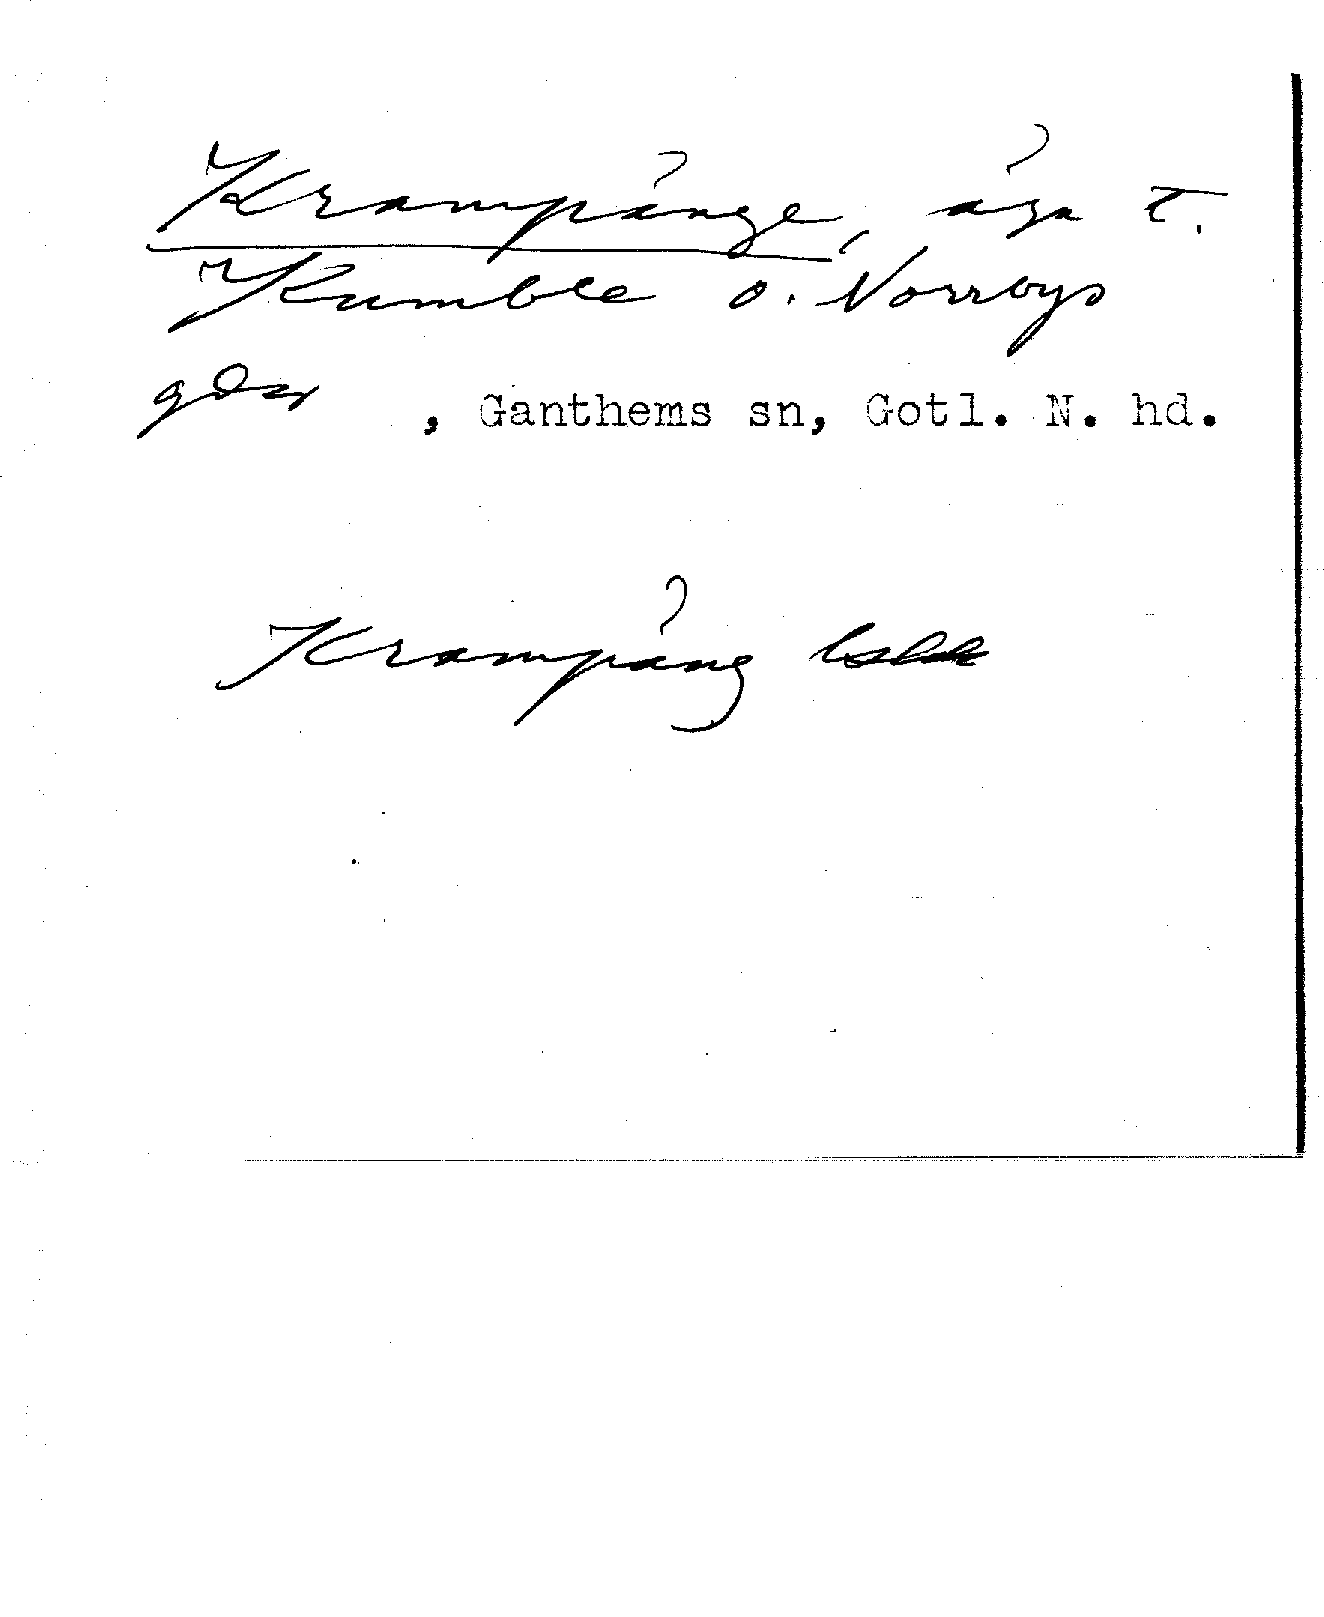 Krampänge, äga t.
Kumble o. Norrbys
gdar, Ganthems sn, Gotl. N. hd.
Krampäng